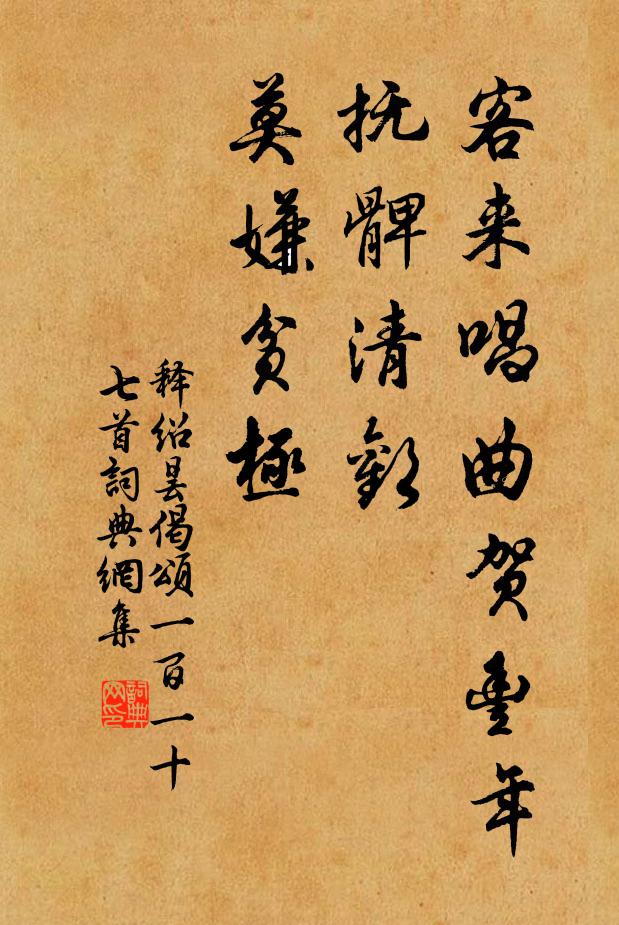 客来唱曲贺豊年
抚髀清歡
莫嫌贫極
释绍昙偈頌一百一十
七首詞典網集
詞典
网印